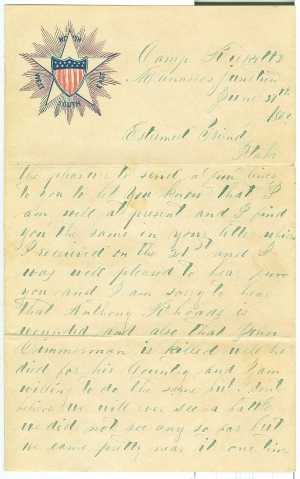 NORTH
WEST
EAST
SOUTH
Camp Ricketts
Manassas Junction
June 27th
186
Esteemed Friend
I take
the pleasure to send a few lines
to you to let you know that I
am well at present and I find
you the same in your letter which
I received on the 21st and I
was well pleased to hear from
you and I am sorry to hear
that Anthony Rhoads is
wounded and also that John
Zimmerman is killed well he
died for his Country and I am
willing to do the same but I dont
believe we will ever see a battle
we did not see any so far but
we came pretty near it one time